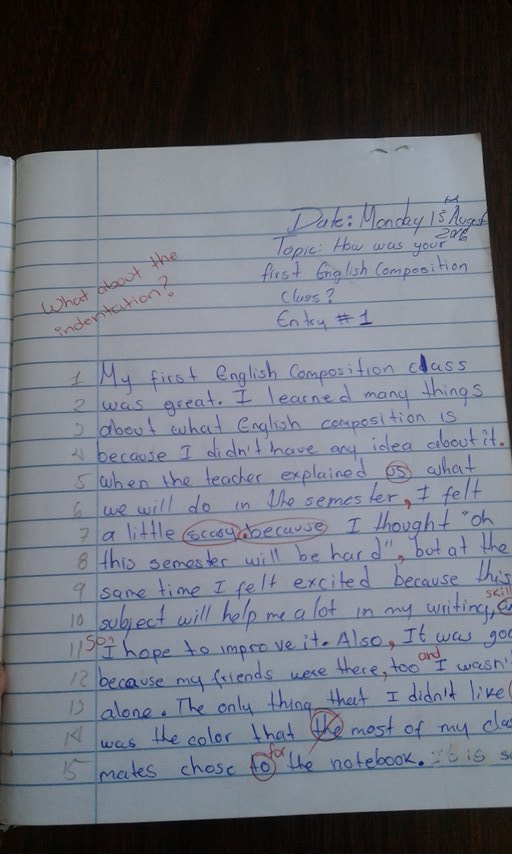 Date: Monday 15th August
2016
Topic: How was your
first English Composition
Class?
Entry # 1
What about the
indentation?
1 My first English Composition class
2 was great. I learned many things
3 about what English composition is
4 because I didn't have any idea about it.
5 when the teacher explained us what
6 we will do in the semester, I felt
7 a little scary because I thought "oh
8 this semester will be hard", but at the
9 same time I felt excited because this
skill
10 subject will help me a lot in my writing,
11 so, I hope to improve it. Also, It was
and
12 because my friends were there, too I
13 alone. The only thing that I didn't like
14 was the color that the most of my
for
15 mates chose to the notebook. It is